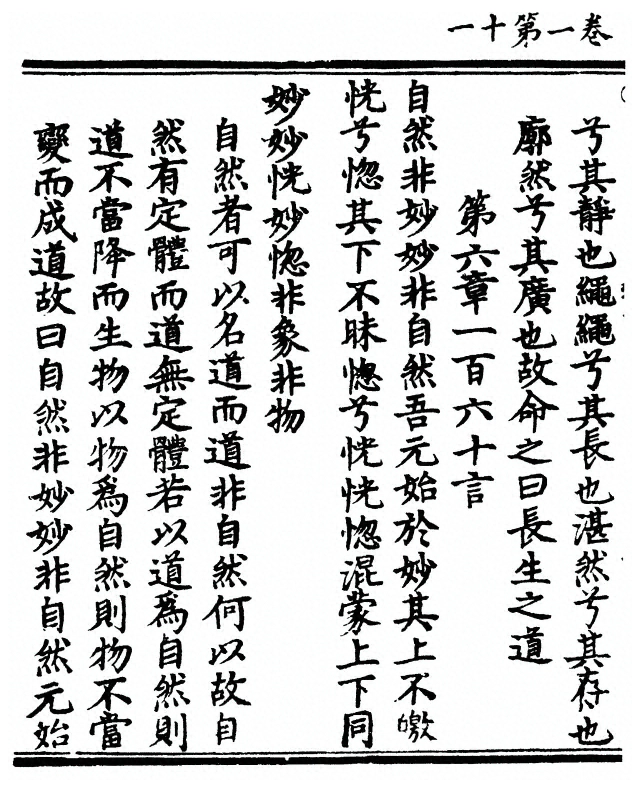 卷一第十一
兮其靜也繩繩兮其長也湛然兮其存也
廓然兮其廣也故命之曰長生之道
第六章一百六十言
自然非妙妙非自然吾元始於妙其上不皦
恍兮惚其下不昧惚兮恍恍惚混蒙上下同
妙妙恍妙惚非象非物
自然者可以名道而道非自然何以故自
然有定體而道無定體若以道爲自然則
道不當降而生物以物爲自然則物不當
變而成道故曰自然非妙妙非自然元始